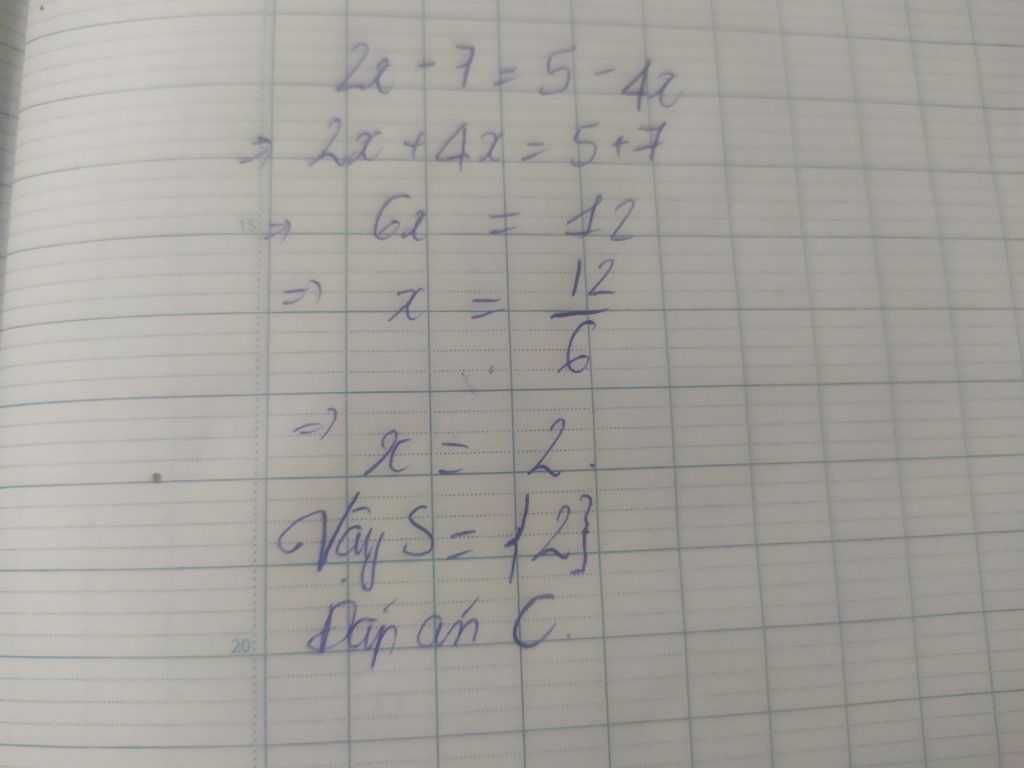 2x - 7 = 5 - 4x
=> 2x + 4x = 5 + 7
15 => 6x = 12
=> x = 12/6
=> x = 2.
Vậy S = {2}
20 Đáp án C.